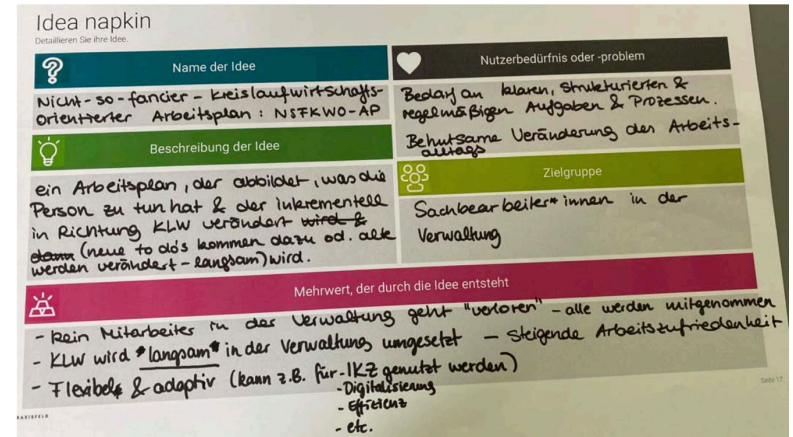 Idea napkin
Detaillieren Sie ihre Idee.
Name der Idee
Nicht-so-fancier-kreislaufwirtschafts-
orientierter Arbeitsplan: NSFKWO-AP
Beschreibung der Idee
ein Arbeitsplan, der abbildet, was die
Person zu tun hat & der inkrementell
in Richtung KLW verändert wird &
dann (neue to do's kommen dazu od. alte
werden verändert - langsam) wird.
Nutzerbedürfnis oder -problem
Bedarf an klaren, strukturierten &
regelmäßigen Aufgaben & Prozessen.
Behutsame Veränderung des Arbeits-
alltags
Zielgruppe
Sachbearbeiter*innen in der
Verwaltung
Mehrwert, der durch die Idee entsteht
- kein Mitarbeiter in der Verwaltung geht "verloren" - alle werden mitgenommen
- KLW wird *langsam* in der Verwaltung umgesetzt - steigende Arbeitszufriedenheit
- Flexibel & adaptiv (kann z.B. für - IKZ genutzt werden)
- Digitalisierung
- Effizienz
- etc.
Seite 17